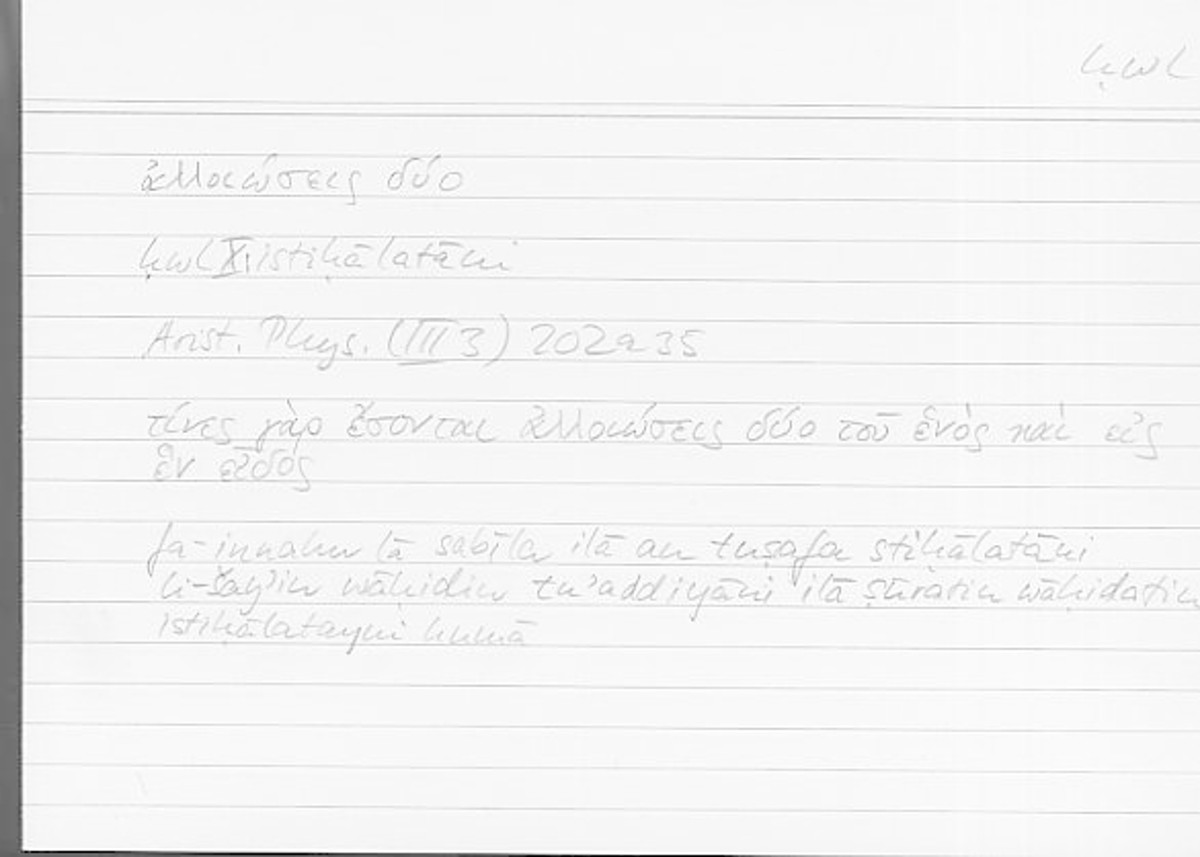 ḥwl
ἀλλοιώσεις δύο
ḥwl X: istiḥālatāni
Arist. Phys. (III 3) 202a35
τίνες γὰρ ἔσονται ἀλλοιώσεις δύο τοῦ ἑνὸς καὶ εἰς
ἓν εἶδος
fa-innahu lā sabīla ilā an tuṣafa stiḥālatāni
li-šayʾin wāḥidin tuʾaddiyāni ilā ṣūratin wāḥidatin
istiḥālatayni humā